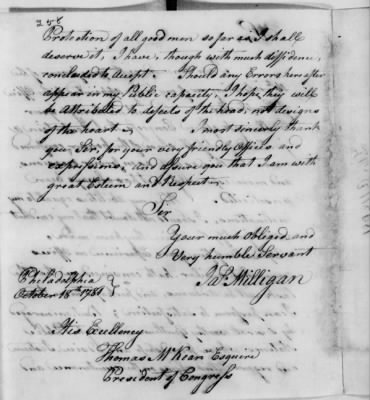 258
Protection of all good men so far as I shall
deserve it, I have, though with much diffidence,
concluded to accept. Should any Errors hereafter
appear in my Public capacity, I hope they will
be attributed to defects of the head, not designs
of the heart. I most sincerely thank
you, Sir, for your very friendly Offices and
expressions, and assure you that I am with
great Esteem and Respect
Sir
Your much obliged and
Very humble Servant
Jas. Milligan
Philadelphia
October 18th 1781
His Excellency
Thomas McKean Esquire
President of Congress